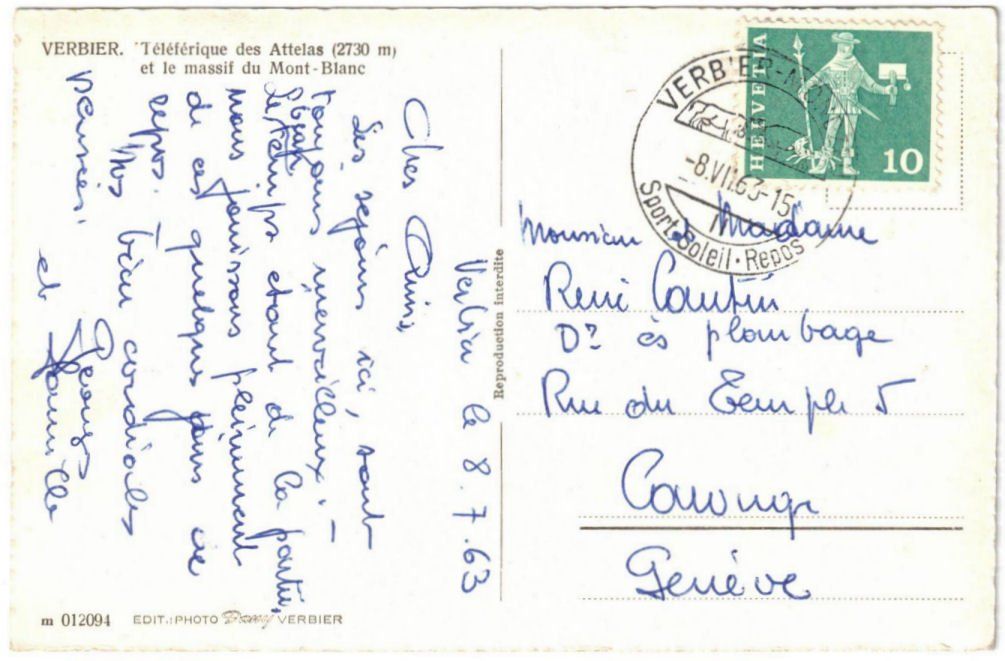 VERBIER. Téléférique des Attelas (2730 m)
et le massif du Mont-Blanc
Verbier le 8.7.63
Chers Amis,
Les séjours ici, sont
toujours merveilleux. –
Le temps étant de la partie,
nous jouissons pleinement
de ces quelques jours de
repos. –
Nos bien cordiales
pensées.
et famille
Reproduction interdite
HELVETIA
10
VERBIER
-8.VII.63-15
Sport·Soleil·Repos
Monsieur & Madame
René Cantin
Dr ès plombage
Rue du Temple 5
Carouge
Genève
m 012094 EDIT.:PHOTO VERBIER